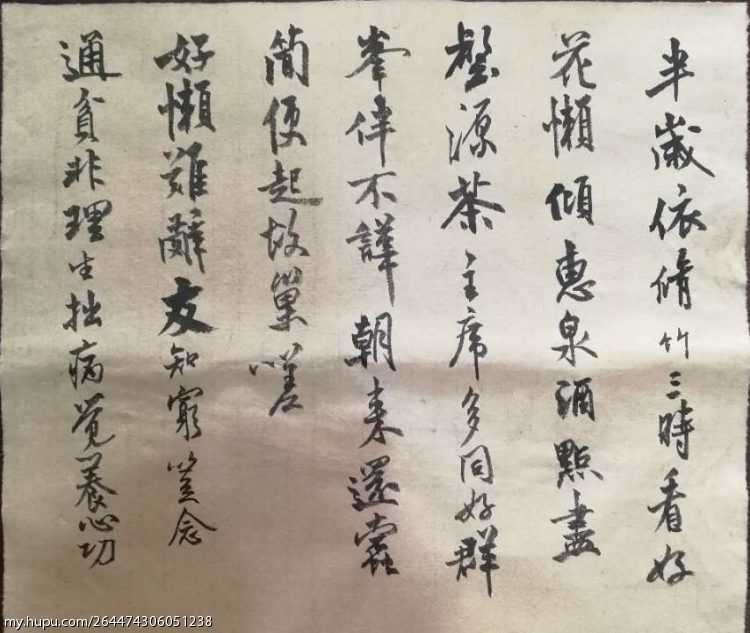 半歲依脩竹三時看好
花懶傾惠泉酒點盡
壑源茶主席多同好群
峯伴不譁朝来還蠹
簡便起故巢嗟
好懶難辭友知窮豈念
通貧非理生拙病覺養心功
my.hupu.com/264474306051238